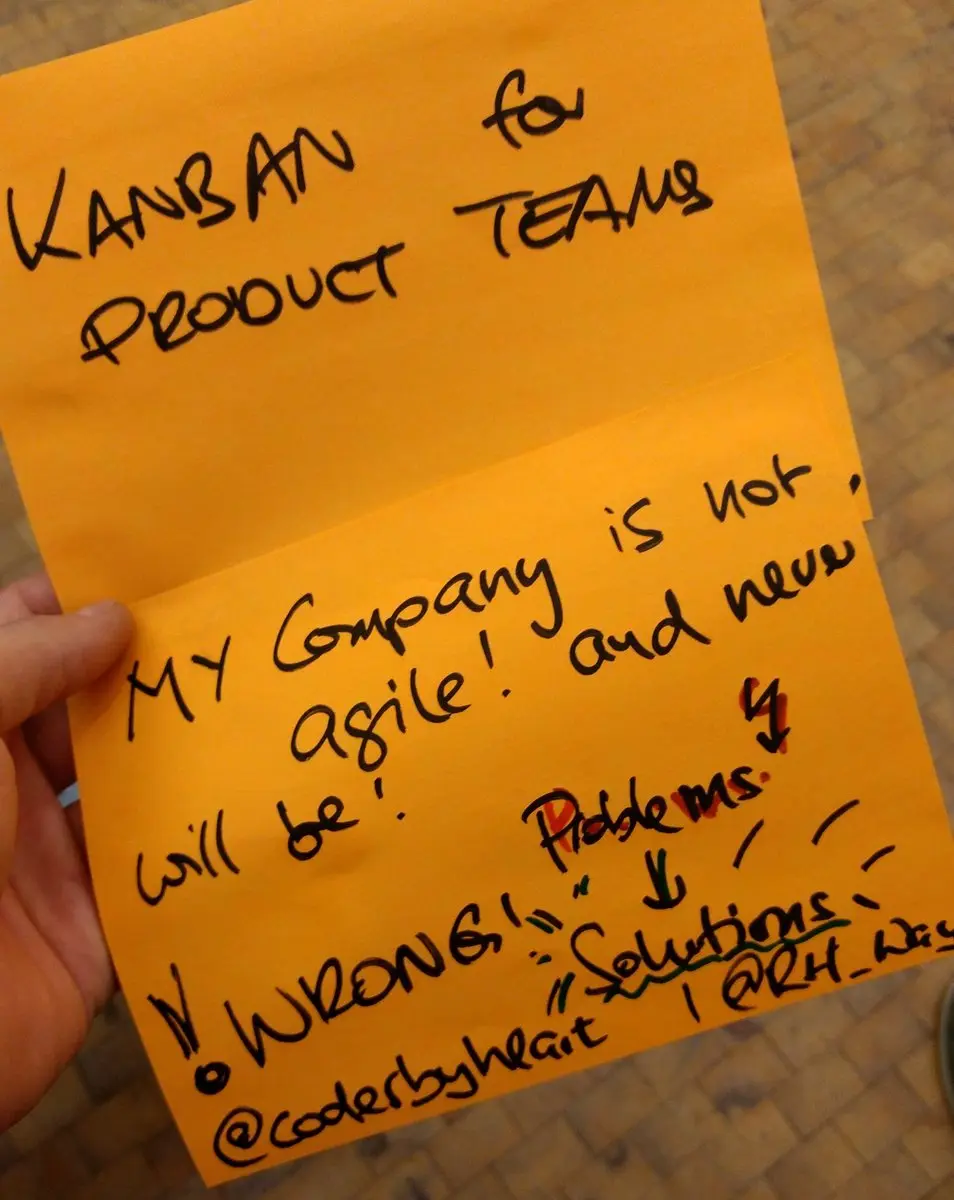 KANBAN for
PRODUCT TEAMS
My Company is not.
agile! and never
will be!
Problems.
! WRONG!
Solutions
@coderbyheart | @RH_Way